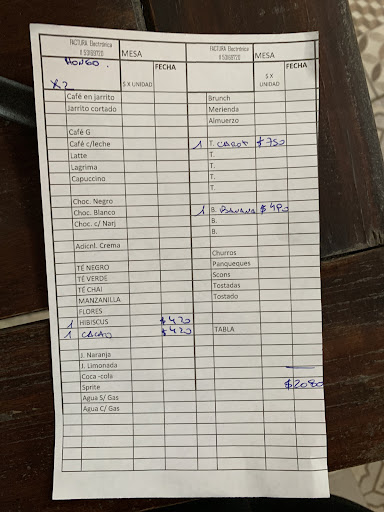 FACTURA Electrónica
MESA
FECHA
HONGO
X2
$ X UNIDAD
Café en jarrito
Jarrito cortado
Café G
Café c/leche
Latte
Lagrima
Capuccino
Choc. Negro
Choc. Blanco
Choc. c/ Narj
Adicnl. Crema
TÉ NEGRO
TÉ VERDE
TÉ CHAI
MANZANILLA
FLORES
1 HIBISCUS $420
1 CACAO $420
J. Naranja
J. Limonada
Coca -cola
Sprite
Agua S/ Gas
Agua C/ Gas
FACTURA Electrónica
MESA
FECHA
$ X
UNIDAD
Brunch
Merienda
Almuerzo
1 T. $750
T.
T.
T.
T.
1 B. BANANA $490
B.
B.
Churros
Panqueques
Scons
Tostadas
Tostado
TABLA
$2080